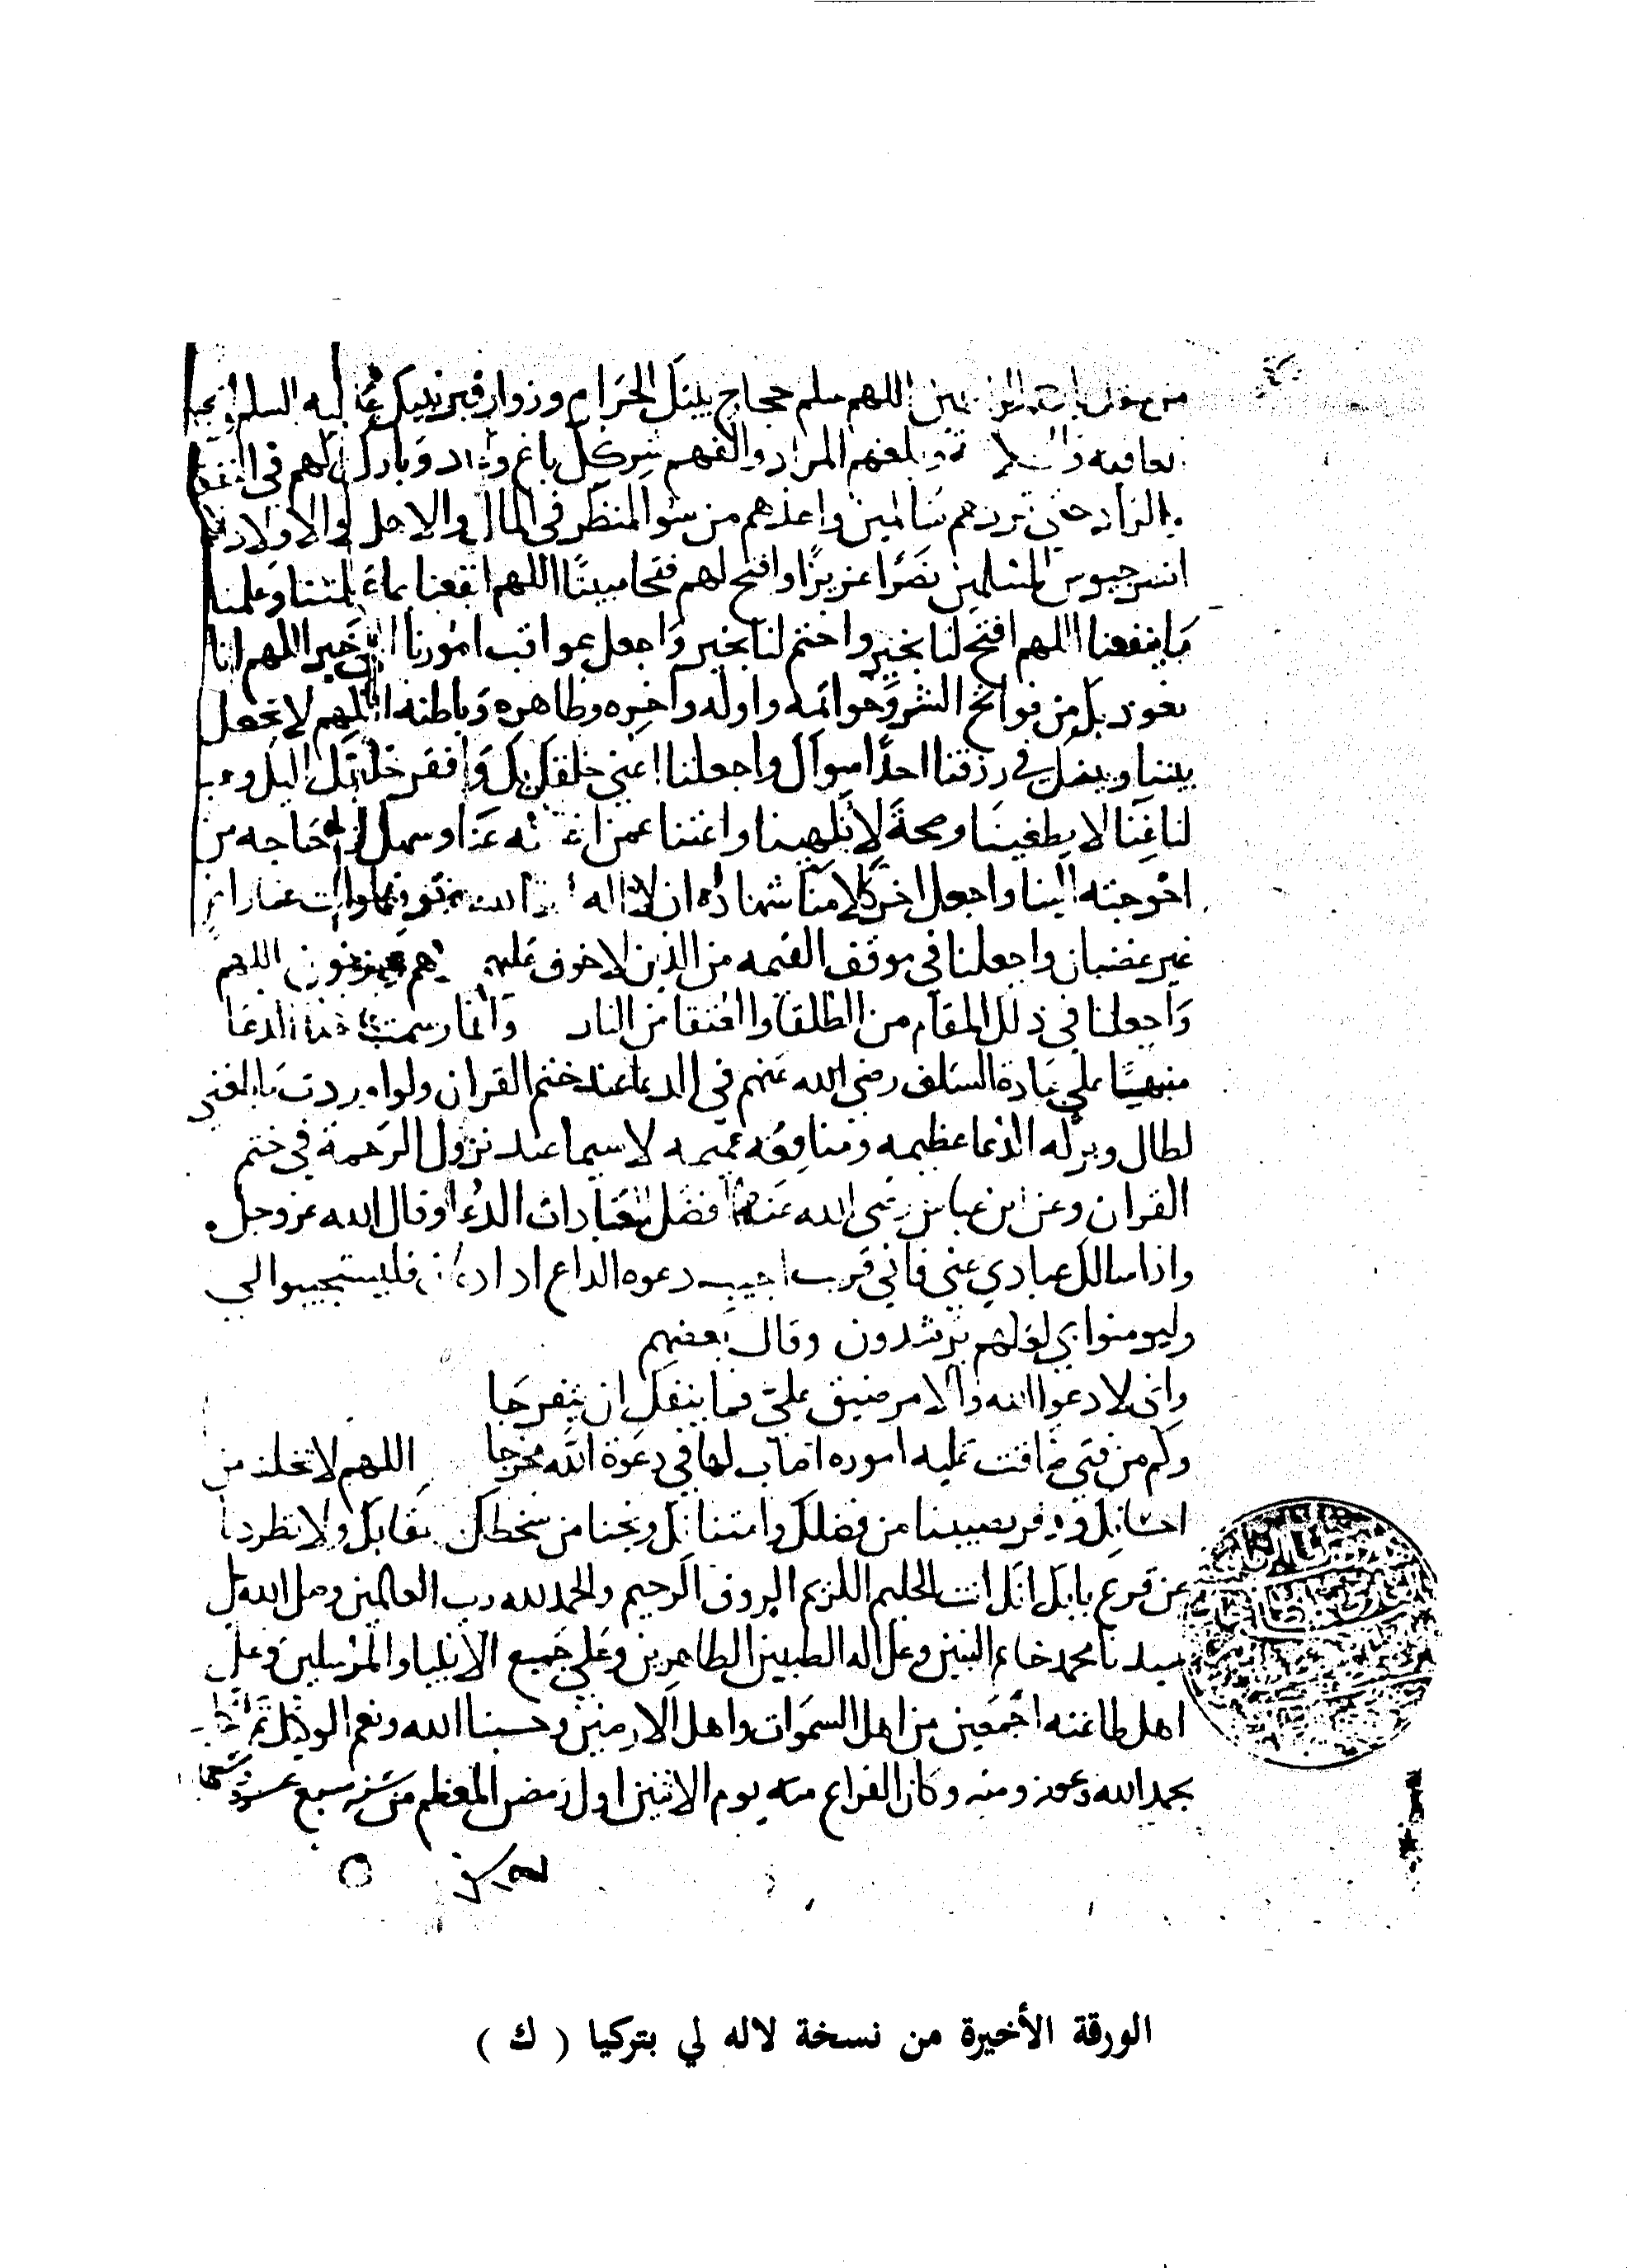 اللهم سلم حجاج بيتك الحرام وزوار قبر نبيك عليه السلم
وبلغهم المراد والفهم شر كل باغ وبارك لهم في
الزاد حتى تردهم سالمين واعذهم من سو المنظر في المال والاهل والاولاد
انصر جيوش المسلمين نصرا عزيزا وافتح لهم فتحا مبينا اللهم انفعنا بما علمتنا وعلمنا
ما ينفعنا اللهم افتح لنا بخير واختم لنا بخير واجعل عواقب امورنا الى خير اللهم انا
نعوذ بك من فواتح الشر وخواتمه واوله واخره وظاهره وباطنه اللهم لا تجعل
بيننا وبينك في رزقنا احدا سواك واجعلنا اغنى خلقك بك وافقر خلقك اليك وهب
لنا غنا لا يطغينا وصحة لا تلهينا واغننا عمن اغنيته عنا وسهل الحاجه من
احوجته الينا واجعل اخر كلامنا شهادة ان لا اله الا الله وتوفنا وانت عنا راض
غير غضبان واجعلنا في موقف القيمه من الذين لا خوف عليهم ولا هم يحزنون اللهم
واجعلنا في ذلك المقام من الطلقا والعتقا من النار وانما رسمت هذا الدعا
منبها على عادة السلف رضي الله عنهم في الدعا عند ختم القران ولو اوردت ما بلغني
لطال وبركه الدعا عظيمه ومنافعه عميمه لا سيما عند نزول الرحمة في ختم
القران وعن ابن عباس رضي الله عنهما افضل العبادات الدعا وقال الله عز وجل
واذا سالك عبادي عني فاني قريب اجيب دعوه الداع اذا دعان فليستجيبوا لي
وليومنوا بي لعلهم يرشدون وقال بعضهم
واني لادعوا الله والامر ضيق علي فما ينفك ان يتفرجا
وكم من فتى ضاقت عليه اموره اصاب لها في دعوة الله مخرجا اللهم لا تخلنا من
احسانك ووفر نصيبنا من فضلك وامتنانك ونجنا من سخطك وعقابك ولا تطردنا
عن قرع بابك انك انت الحليم الكريم الروف الرحيم والحمد لله رب العالمين وصلى الله على
سيدنا محمد خاتم النبيين وعلى اله الطيبين الطاهرين وعلى جميع الانبيا والمرسلين وعلى
اهل طاعته اجمعين من اهل السموات واهل الارضين وحسبنا الله ونعم الوكيل تم
بحمد الله وعونه ومنه وكان الفراغ منه يوم الاثنين اول رمضن المعظم من سنه سبع
الورقة الأخيرة من نسخة لاله لي بتركيا ( ك )